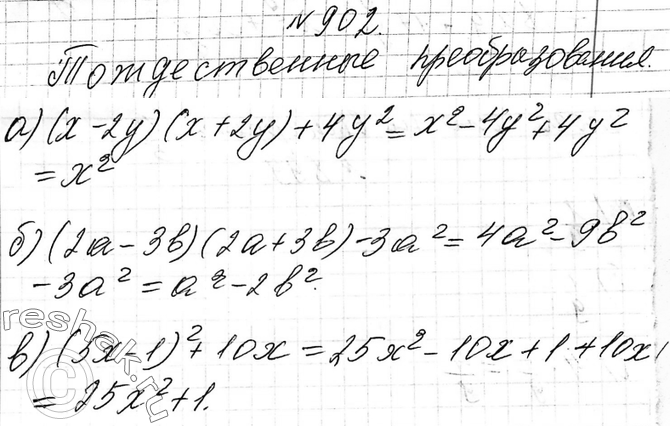 №902.
Тождественные преобразования.
а) (x - 2y)(x + 2y) + 4y² = x² - 4y² + 4y²
= x²
б) (2a - 3b)(2a + 3b) - 3a² = 4a² - 9b²
- 3a² = a² - 2b².
reshak.ru
в) (5x - 1)² + 10x = 25x² - 10x + 1 + 10x
©
= 25x² + 1.